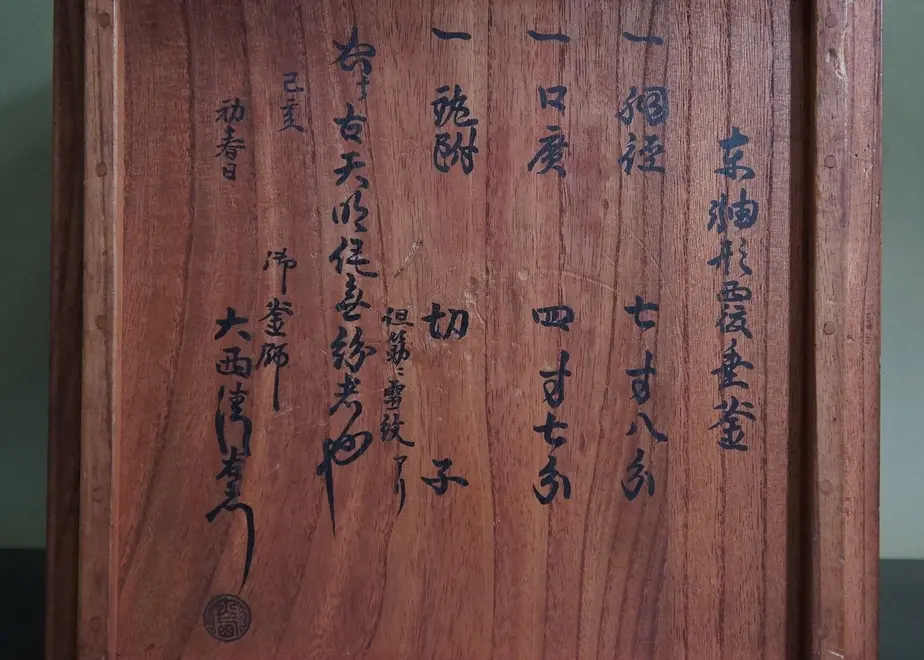 車軸形覆垂釜
一 胴径 七寸八分
一 口廣 四寸七分
一 鐶附 切子
但筋ニ雲紋アリ
右古天明作無紛者也
己亥
初春日
御釜師
大西清右衛門